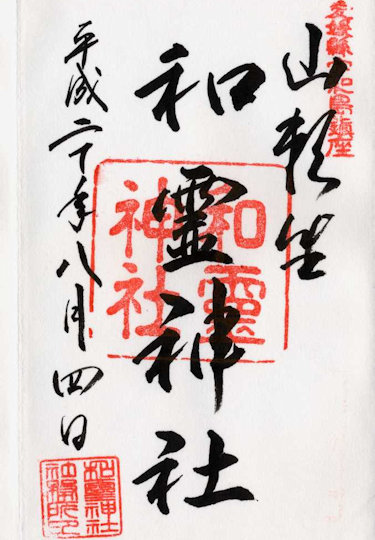 愛媛縣宇和島鎮座
山頼坐
和霊神社
和靈神社
平成二十年八月四日
和靈神社
社務所印